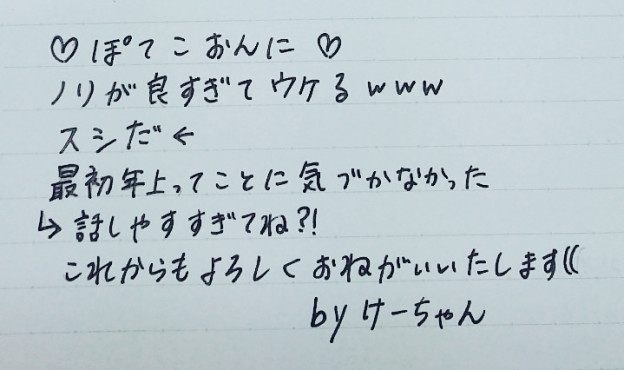 ♡ ぽてこおんに ♡
ノリが良すぎてウケるwww
スシだ←
最初年上ってことに気づかなかった
↳話しやすすぎてね?!
これからもよろしくおねがいいたします((
by けーちゃん